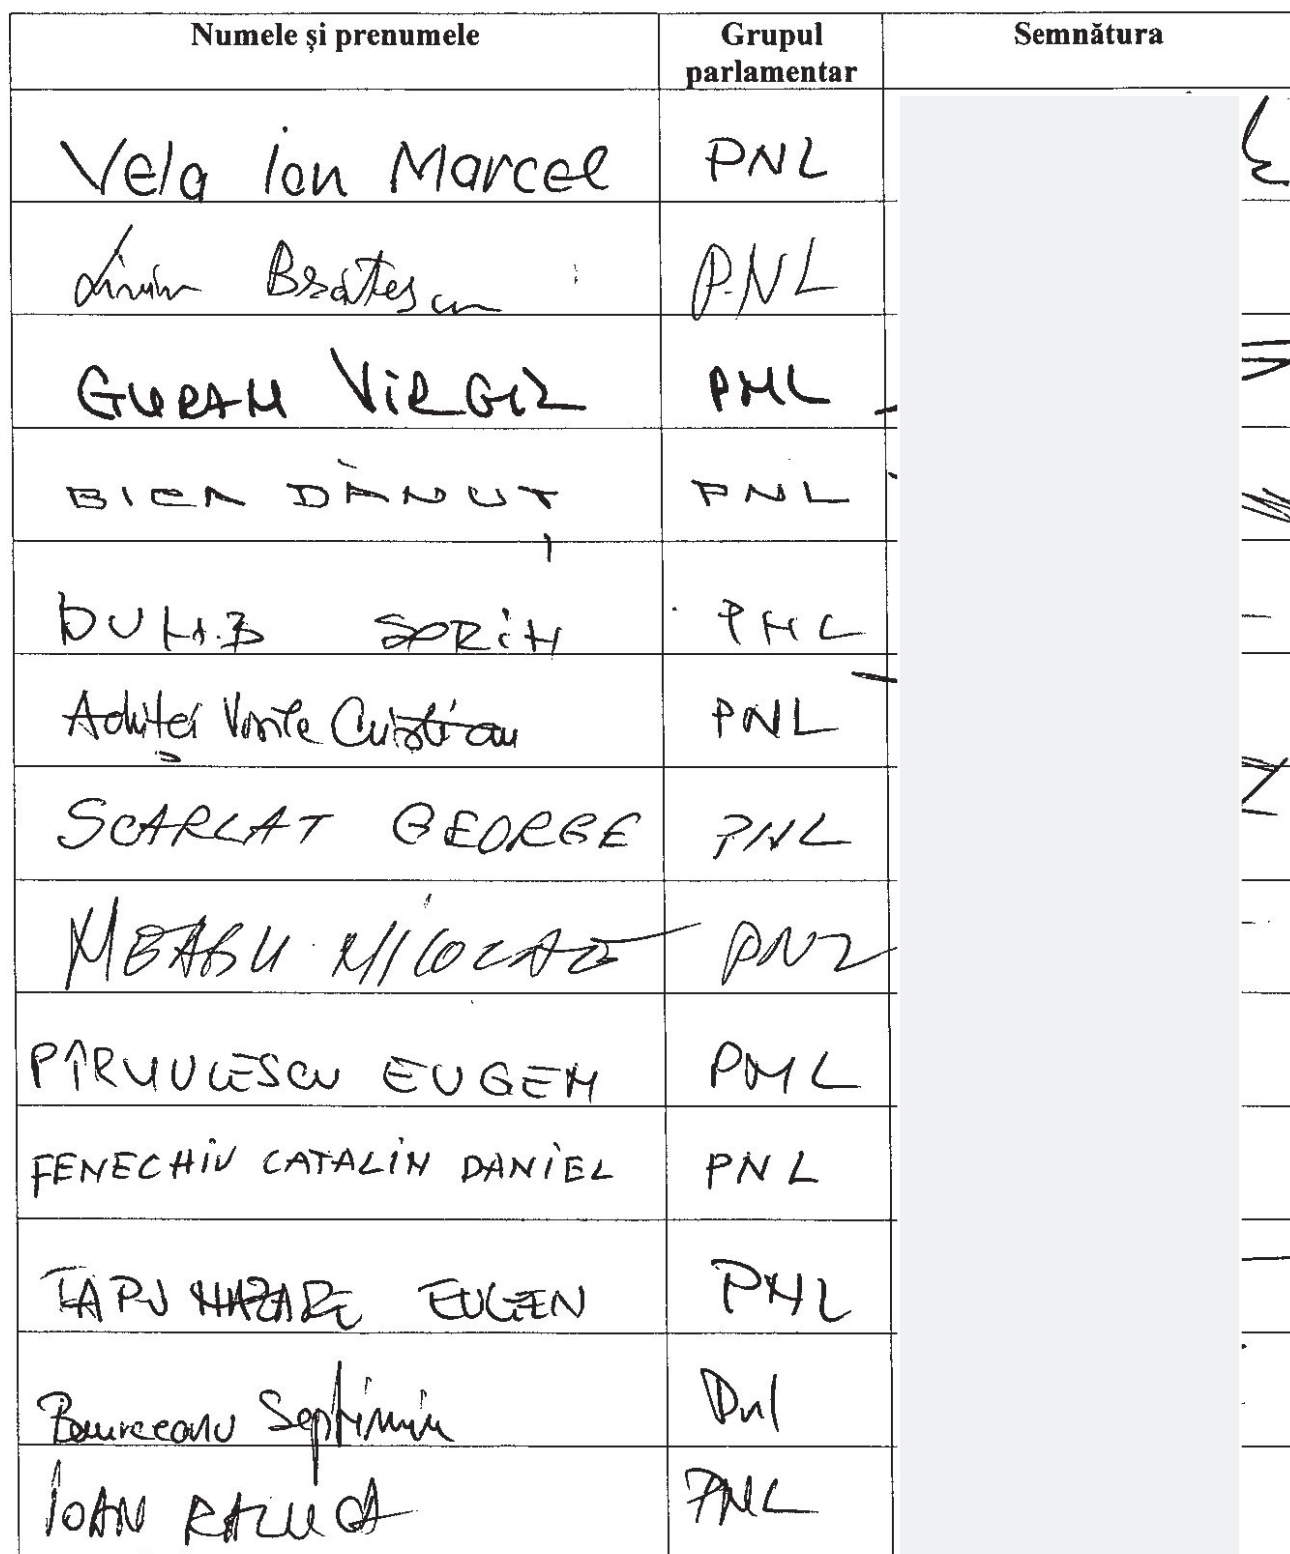 Numele și prenumele Grupul parlamentar Semnătura
Vela Ion Marcel PNL
Liviu Brătescu PNL
GURAN VIRGIL PNL
BICA DĂNUȚ PNL
SORIN PNL
Achiței Vasile Cristian PNL
SCARLAT GEORGE PNL
NEAGU NICOLAE PNL
PÎRVULESCU EUGEN PNL
FENECHIU CATALIN DANIEL PNL
ȚAPU NAZARE EUGEN PNL
Bourceanu Septimiu Pnl
IOAN RALUCA PNL